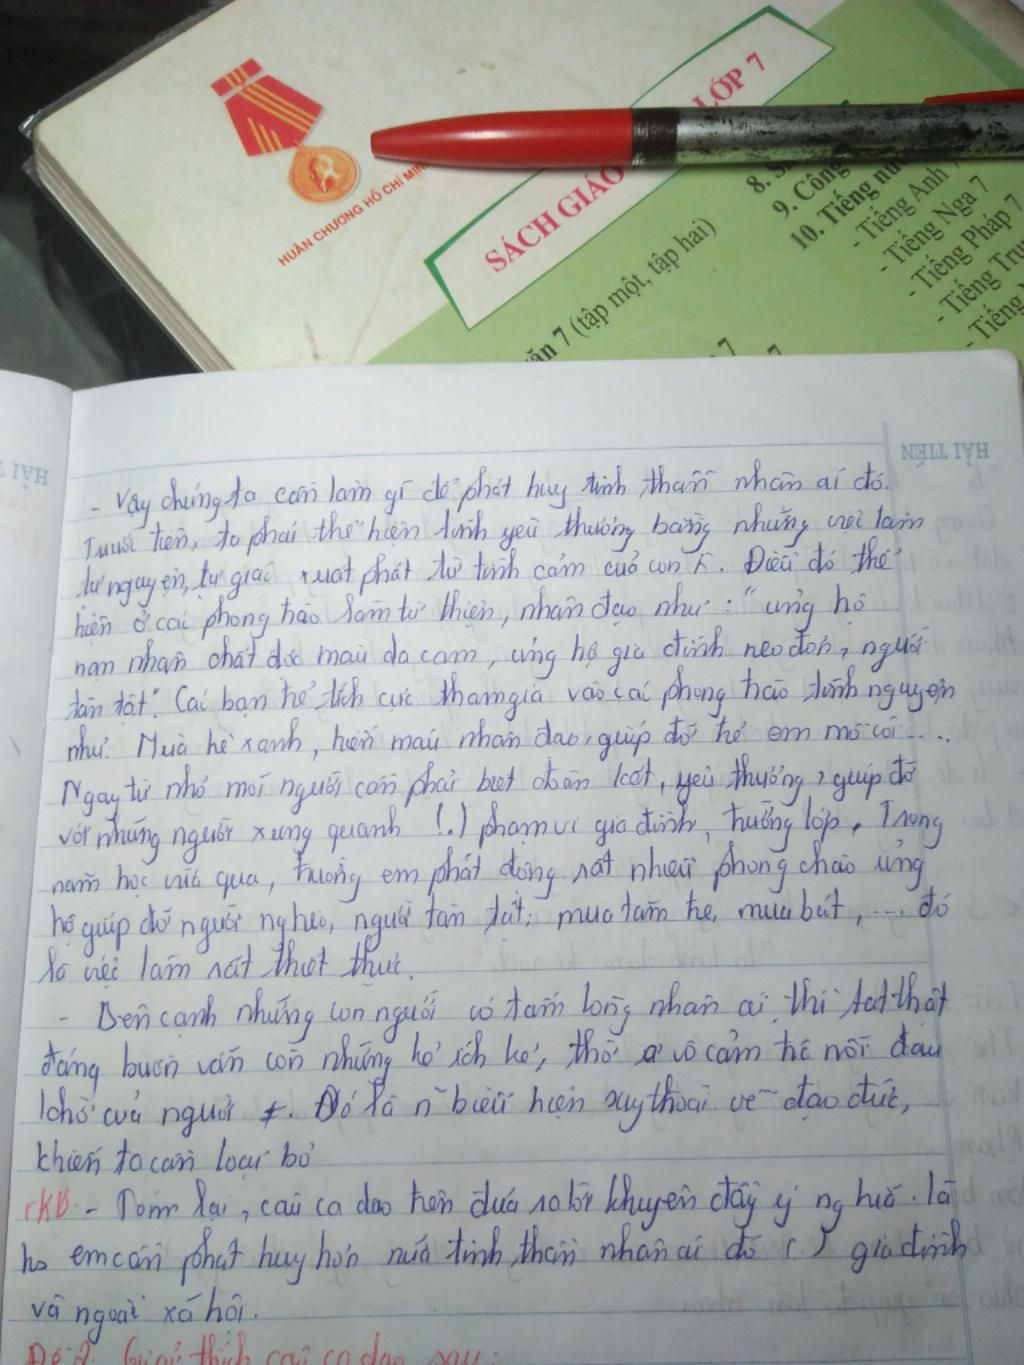 HUÂN CHƯƠNG HỒ CHÍ MINH
SÁCH GIÁO LỚP 7
7 (tập một, tập hai)
9. Công
10. Tiếng nư
- Tiếng Anh 7
- Tiếng Nga 7
- Tiếng Pháp 7
- Tiếng Tru
- Tiếng
HẢI TIẾN
- Vậy chúng ta cần làm gì để phát huy tinh thần nhân ái đó.
Trước tiên, ta phải thể hiện tình yêu thương bằng những việc làm
tự nguyện, tự giác xuất phát từ tình cảm của con . Điều đó thể
hiện ở các phong trào làm từ thiện, nhân đạo như: "ủng hộ
nạn nhân chất độc màu da cam, ủng hộ gia đình neo đơn, người
tàn tật". Các bạn trẻ tích cực tham gia vào các phong trào tình nguyện
như: Mùa hè xanh, hiến máu nhân đạo, giúp đỡ trẻ em mồ côi ....
Ngay từ nhỏ mỗi người cần phải biết đoàn kết, yêu thương, giúp đỡ
với những người xung quanh (.) phạm vi gia đình, trường lớp. Trong
năm học vừa qua, trường em phát động rất nhiều phong chào ủng
hộ giúp đỡ người nghèo, người tàn tật: mua tăm tre, mua bút, ... đó
là việc làm rất thiết thực.
- Bên cạnh những con người có tấm lòng nhân ái thì thật
đáng buồn vẫn còn những kẻ ích kỉ, thờ ơ vô cảm trc nỗi đau
khổ của người . Đó là n~ biểu hiện suy thoái về đạo đức,
khiến ta cần loại bỏ
KB - Tóm lại, câu ca dao trên đưa ra lời khuyên đầy ý nghĩa. là
hs em cần phát huy hơn nữa tinh thần nhân ái đó (.) gia đình
và ngoài xã hội.
Đề 2. Giải thích câu ca dao sau: